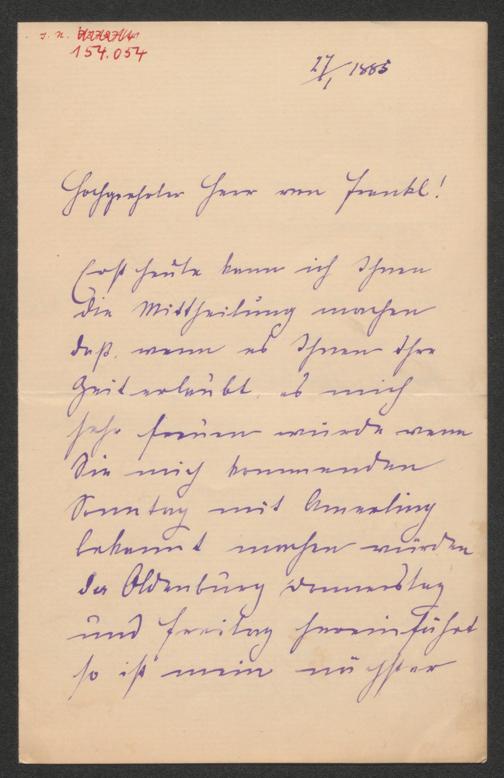 I. N.
154.054
27/1 1885
Hochgeehrter Herr von Frankl!
Erst heute kann ich Ihnen
die Mittheilung machen
daß, wenn es Ihnen Ihre
Zeit erlaubt, es mich
sehr freuen würde wenn
Sie mich kommenden
Sonntag mit Amerling
bekannt machen würden
da Oldenburg Donnerstag
und Freitag hereinfährt
so ist mein nächster